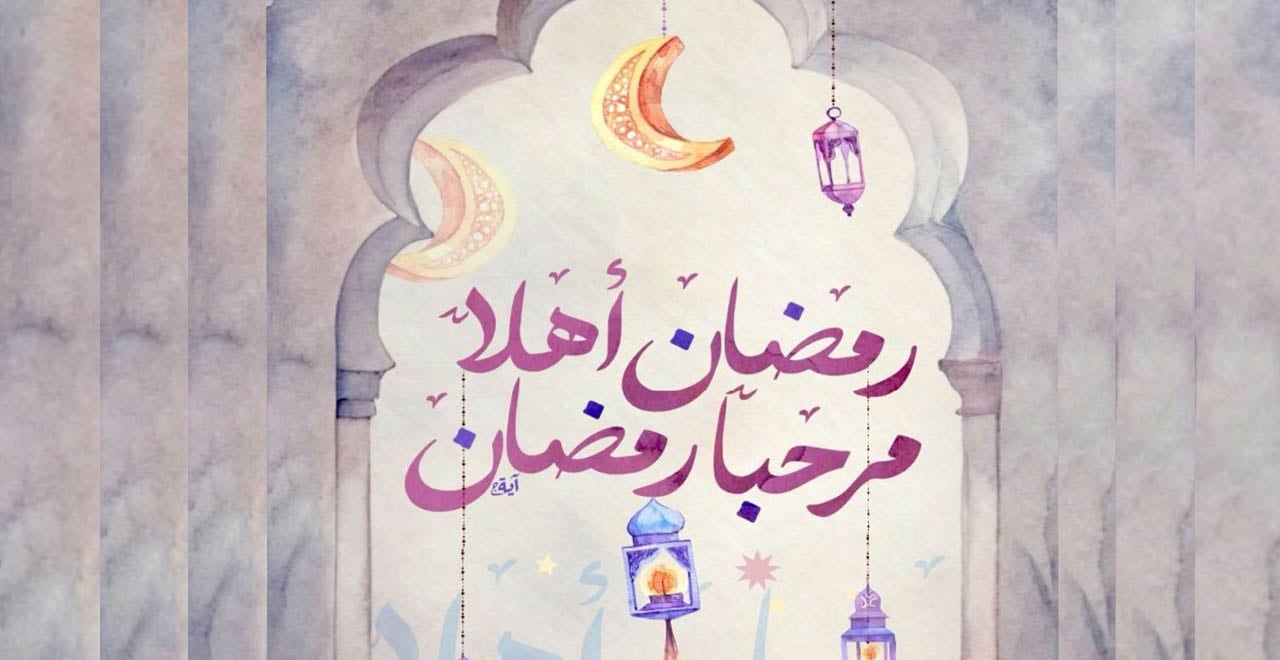 رمضان أهلا
مرحبا رمضان
آية
أهلا